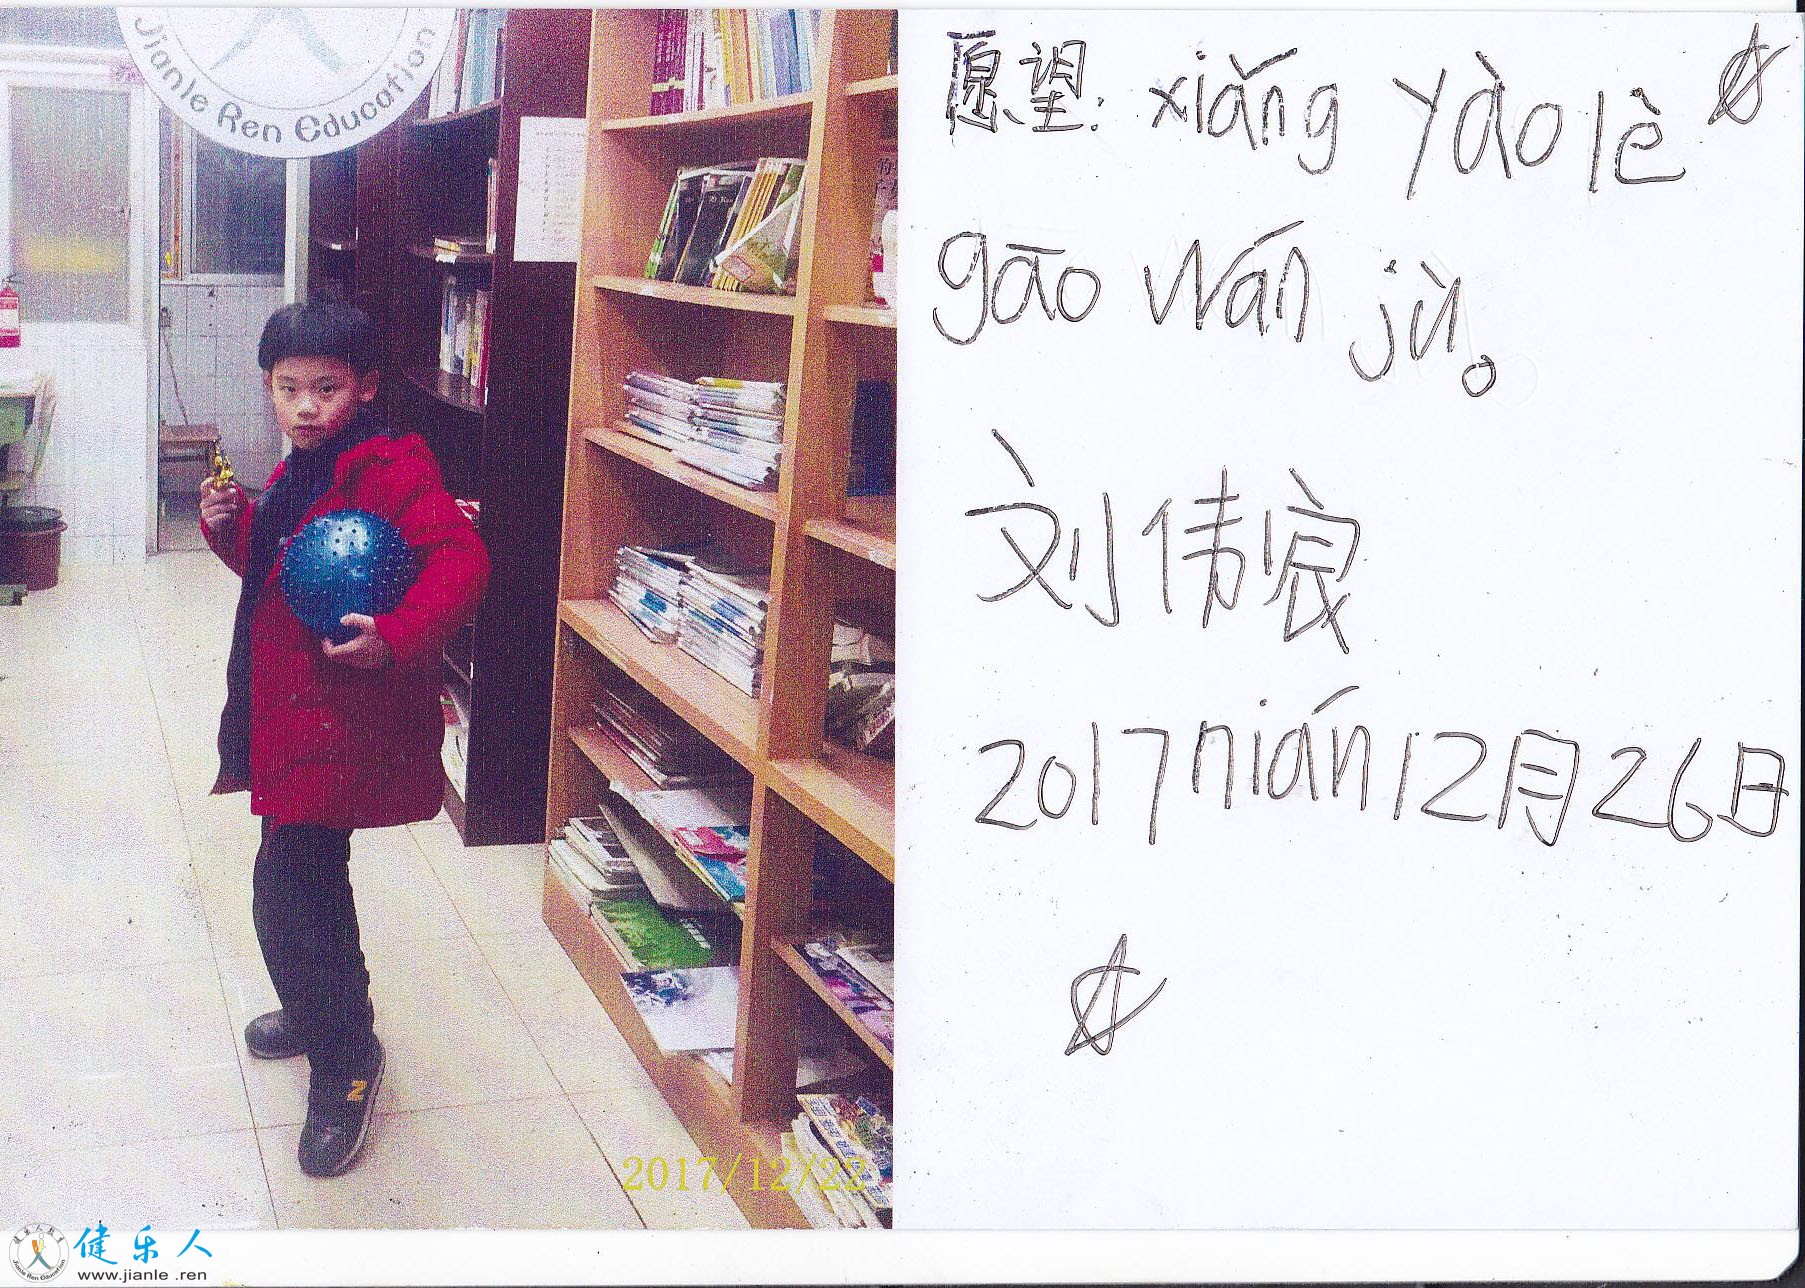 Jianle Ren Education
2017/12/22
愿望: xiǎng yào lè
gāo wán jù。
刘伟宸
2017nián12月26日
健乐人
www.jianle .ren